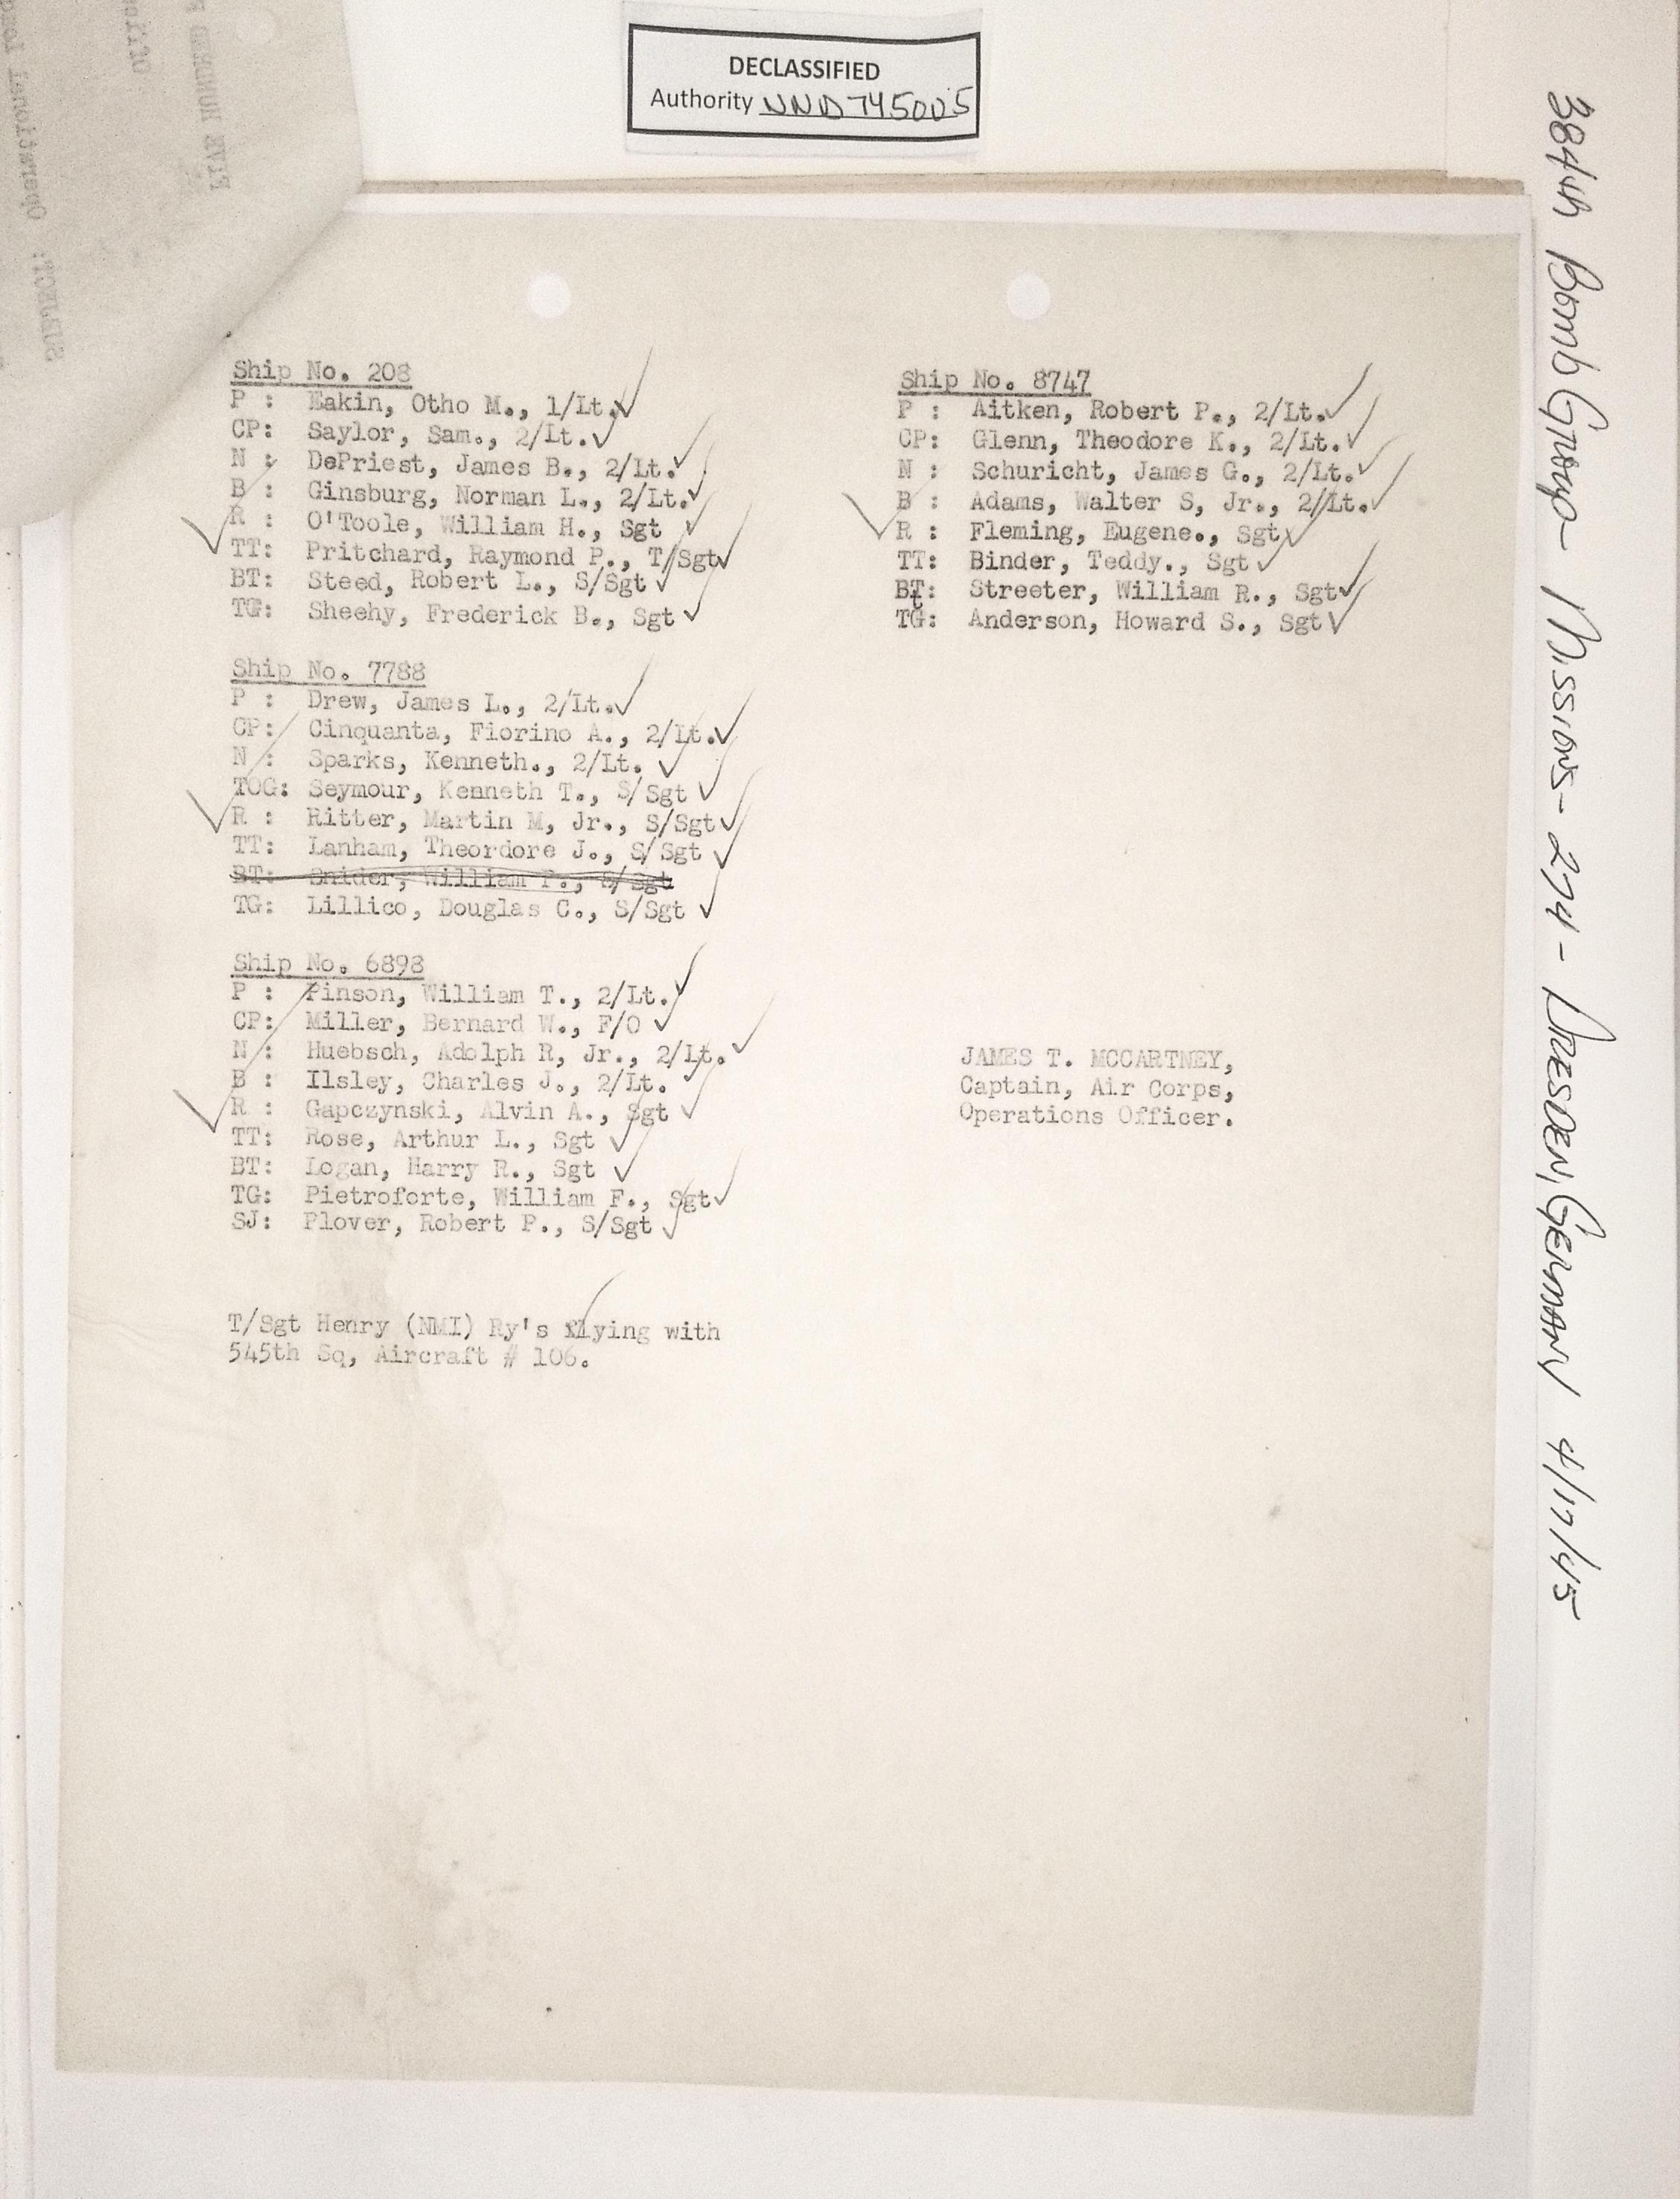 DECLASSIFIED
Authority NND 745005
384th Bomb Group - Missions - 274 - Dresden, Germany 4/17/45
SUBJECT: Operational
FIVE HUNDRED
Ship No. 208
P : Eakin, Otho M., 1/Lt.
CP: Saylor, Sam., 2/Lt.
N : DePriest, James B., 2/Lt.
B : Ginsburg, Norman L., 2/Lt.
R : O'Toole, William H., Sgt
TT: Pritchard, Raymond P., T/Sgt
BT: Steed, Robert L., S/Sgt
TG: Sheehy, Frederick B., Sgt
Ship No. 7788
P : Drew, James L., 2/Lt.
CP: Cinquanta, Fiorino A., 2/Lt.
N : Sparks, Kenneth., 2/Lt.
TOG: Seymour, Kenneth T., S/Sgt
R : Ritter, Martin M, Jr., S/Sgt
TT: Lanham, Theordore J., S/Sgt
BT: Snider, William P., S/Sgt
TG: Lillico, Douglas C., S/Sgt
Ship No. 6898
P : Pinson, William T., 2/Lt.
CP: Miller, Bernard W., F/O
N : Huebsch, Adolph R, Jr., 2/Lt.
B : Ilsley, Charles J., 2/Lt.
R : Gapczynski, Alvin A., Sgt
TT: Rose, Arthur L., Sgt
BT: Logan, Harry R., Sgt
TG: Pietroforte, William F., Sgt
SJ: Plover, Robert P., S/Sgt
T/Sgt Henry (NMI) Ry's flying with
545th Sq, Aircraft # 106.
Ship No. 8747
P : Aitken, Robert P., 2/Lt.
CP: Glenn, Theodore K., 2/Lt.
N : Schuricht, James G., 2/Lt.
B : Adams, Walter S, Jr., 2/Lt.
R : Fleming, Eugene., Sgt
TT: Binder, Teddy., Sgt
BT: Streeter, William R., Sgt
TG: Anderson, Howard S., Sgt
JAMES T. MCCARTNEY,
Captain, Air Corps,
Operations Officer.